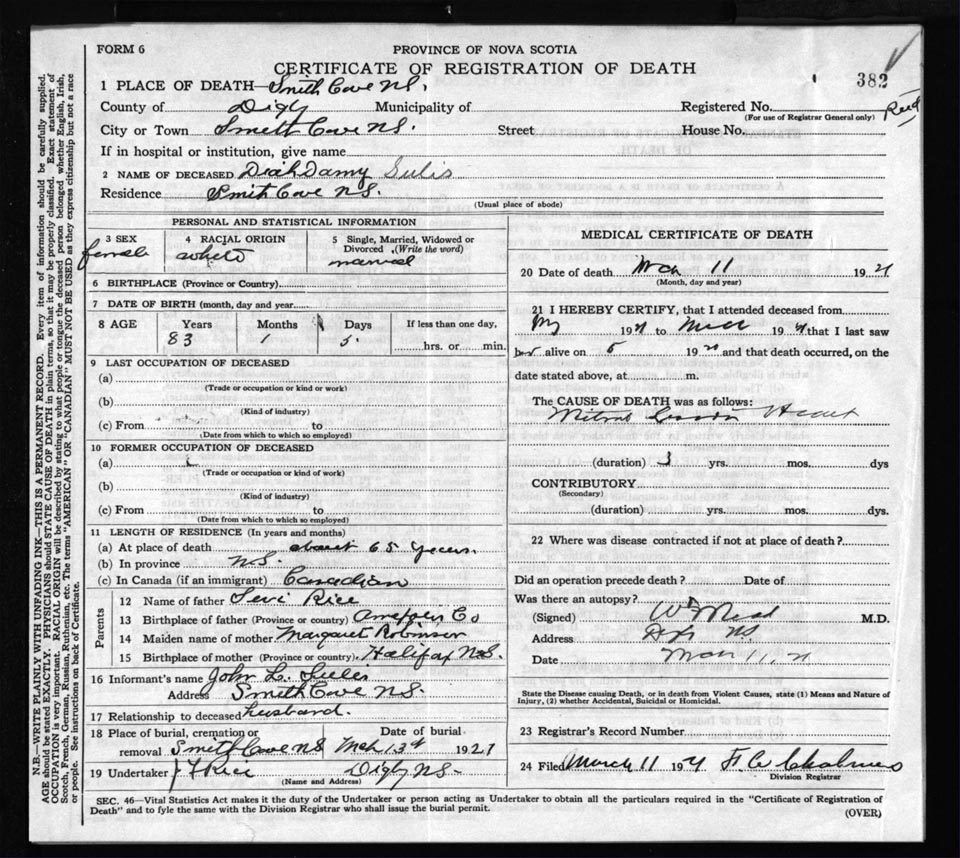 FORM 6
PROVINCE OF NOVA SCOTIA
CERTIFICATE OF REGISTRATION OF DEATH
382
1 PLACE OF DEATH—Smith Cove N.S.
County of Digby Municipality of Registered No.
(For use of Registrar General only)
City or Town Smith Cove N.S. Street House No.
If in hospital or institution, give name
2 NAME OF DECEASED Sulis
Residence Smith Cove N.S.
(Usual place of abode)
PERSONAL AND STATISTICAL INFORMATION
3 SEX female
4 RACIAL ORIGIN white
5 Single, Married, Widowed or Divorced (Write the word) married
6 BIRTHPLACE (Province or Country)
7 DATE OF BIRTH (month, day and year)
8 AGE Years Months Days If less than one day,
83 1 5 hrs. or min.
9 LAST OCCUPATION OF DECEASED
(a)
(Trade or occupation or kind or work)
(b)
(Kind of industry)
(c) From to
(Date from which to which so employed)
10 FORMER OCCUPATION OF DECEASED
(a)
(Trade or occupation or kind of work)
(b)
(Kind of industry)
(c) From to
(Date from which to which so employed)
11 LENGTH OF RESIDENCE (In years and months)
(a) At place of death about 65 years
(b) In province N.S.
(c) In Canada (if an immigrant) Canadian
Parents
12 Name of father Levi Rice
13 Birthplace of father (Province or country) Co
14 Maiden name of mother Margaret Robinson
15 Birthplace of mother (Province or country) Halifax N.S.
16 Informant's name John L. Sulis
Address Smith Cove N.S.
17 Relationship to deceased husband.
18 Place of burial, cremation or Date of burial
removal Smith Cove N.S. Mch 13th 1921
19 Undertaker Rice Digby N.S.
(Name and Address)
MEDICAL CERTIFICATE OF DEATH
20 Date of death Mch 11 1921
(Month, day and year)
21 I HEREBY CERTIFY, that I attended deceased from
1921 to 1921 that I last saw
her alive on 5 19 and that death occurred, on the
date stated above, at m.
The CAUSE OF DEATH was as follows:
Mitral Heart
(duration) 3 yrs. mos. dys
CONTRIBUTORY
(Secondary)
(duration) yrs. mos. dys.
22 Where was disease contracted if not at place of death?
Did an operation precede death? Date of
Was there an autopsy?
(Signed) M.D.
Address NS
Date Mar 11, 21
State the Disease causing Death, or in death from Violent Causes, state (1) Means and Nature of
Injury, (2) whether Accidental, Suicidal or Homicidal.
23 Registrar's Record Number
24 Filed March 11 1921 F. W. Chalmers
Division Registrar
SEC. 46—Vital Statistics Act makes it the duty of the Undertaker or person acting as Undertaker to obtain all the particulars required in the "Certificate of Registration of
Death" and to fyle the same with the Division Registrar who shall issue the burial permit.
(OVER)
N.B.—WRITE PLAINLY WITH UNFADING INK—THIS IS A PERMANENT RECORD. Every item of information should be carefully supplied.
AGE should be stated EXACTLY. PHYSICIANS should STATE CAUSE OF DEATH in plain terms, so that it may be properly classified. Exact statement of
OCCUPATION is very important. RACIAL ORIGIN will be described by stating to what people or tongue the deceased person belonged whether English, Irish,
Scotch, French, German, Russian, Ruthenian, etc. The terms "AMERICAN" OR "CANADIAN" MUST NOT BE USED as they express citizenship but not a race
or people. See instructions on back of Certificate.